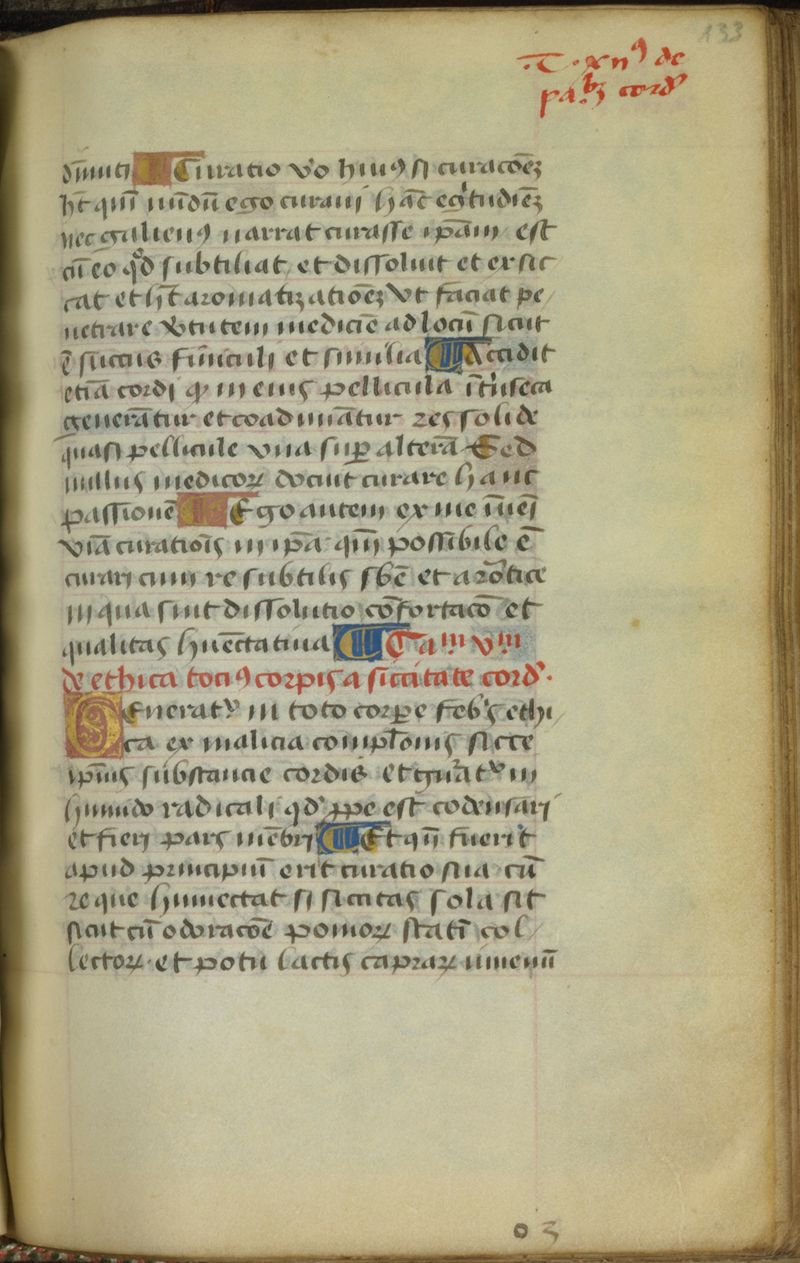 133
.T. xiiꝰ de
pa.bꝫ cordꝭ
dimiti Curatio vo hiuꝰ si curacōeꝫ
ht̄ qm̄ nūdū ego curaui hāc egtudinēꝫ
nec galienꝰ narrat curasse ipām est
cū eo qd subtiliat et dissoluit et exsic
cat et ht̄ aromatizatiōeꝫ vt faciat pe
netrare vtutem medicīe ad locū sicut
ē succus funiculi et similia Accidit
etiā cordi qꝫ in eius pellicula īt̄nseca
generātur et coadunātur res solide
quasi pellicule vna sup̄ alterā Sed
nullus medicoꝝ docuit curare hanc
passionē Ego autem ex me īuēi
viā curatiōis in ipā qm̄ possibile ē
curari cum re subtilis sbē et arōtice
in qua sint dissolutio cōfortacō et
qualitas huēctatiua Cam vm
de ethica totiꝰ corpis a siccitate cordꝭ.
Generatᷣ in toto corpe febꝭ ethi
ca ex malicia complōnis sicce
ipīus substancie cordis et gn̄atᷣ in
humido radicali qd ꝓpe est cōdensari
et fieri pars mēbri Et qn̄ fuerit
apud principiū erit curatio sua cū
re que humectat si siccitas sola sit
sicut cū odoracōe pomoꝝ statī col
lectoꝝ. et potu lactis capraꝝ iuuenū
o 3